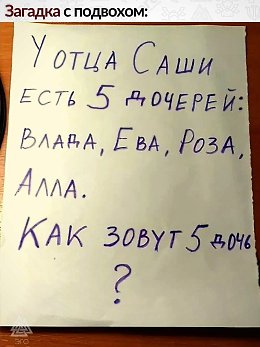 Загадка с подвохом:
У отца Саши
есть 5 дочерей:
Влада, Ева, Роза,
Алла.
Как зовут 5 дочь
?